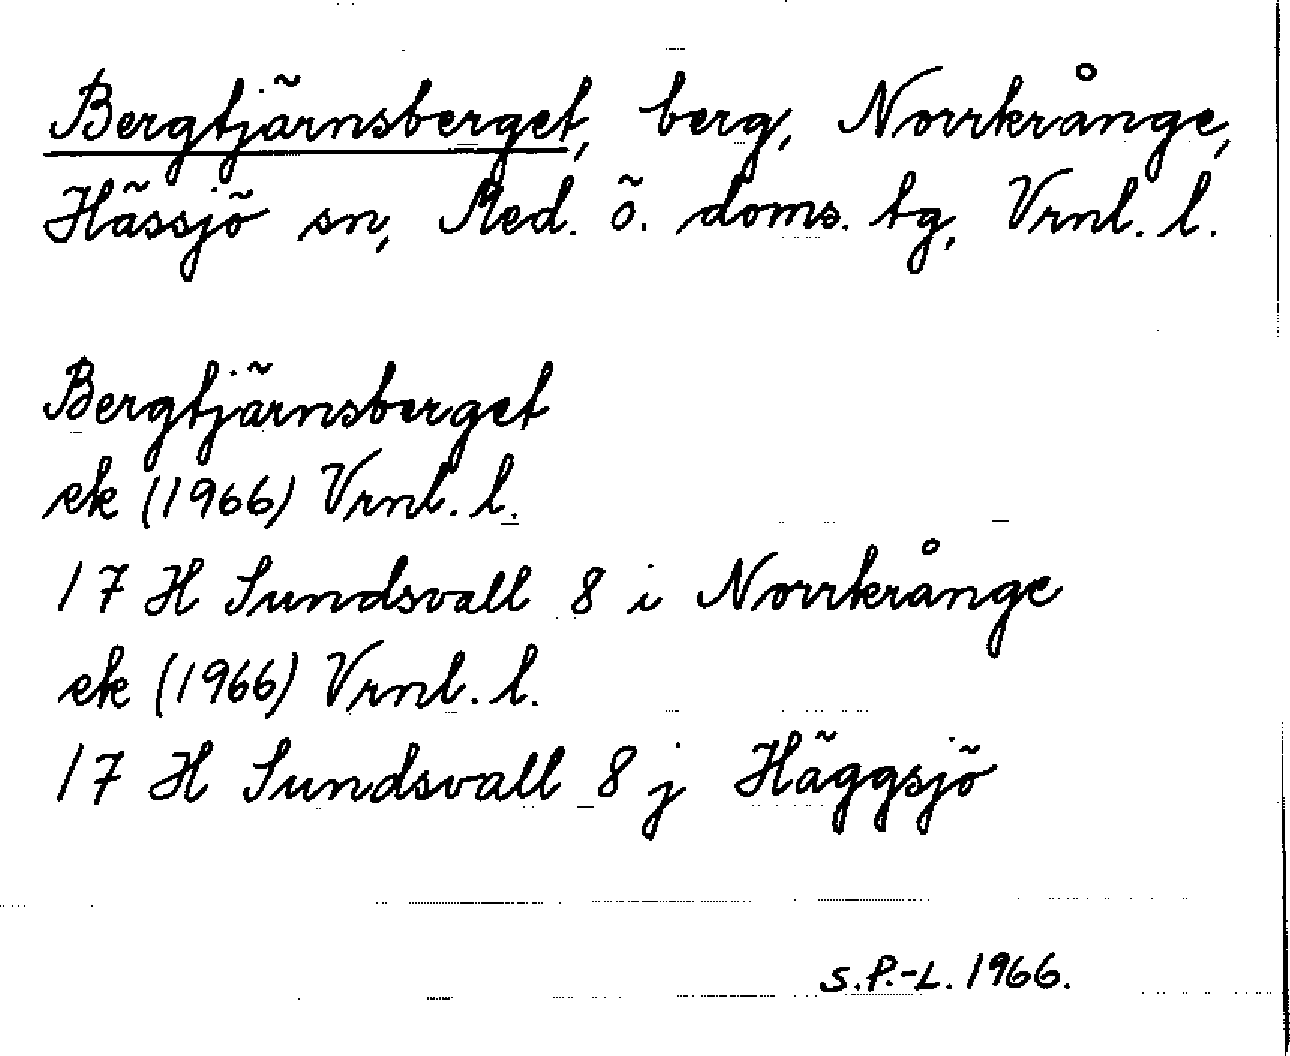 Bergtjärnsberget, berg, Norrkrånge,
Hässjö sn, Med. ö. doms. tg, Vrnl. l.
Bergtjärnsberget
ek (1966) Vrnl. l.
17 H Sundsvall 8 i Norrkrånge
ek (1966) Vrnl. l.
17 H Sundsvall 8 j Häggsjö
S.P.-L. 1966.